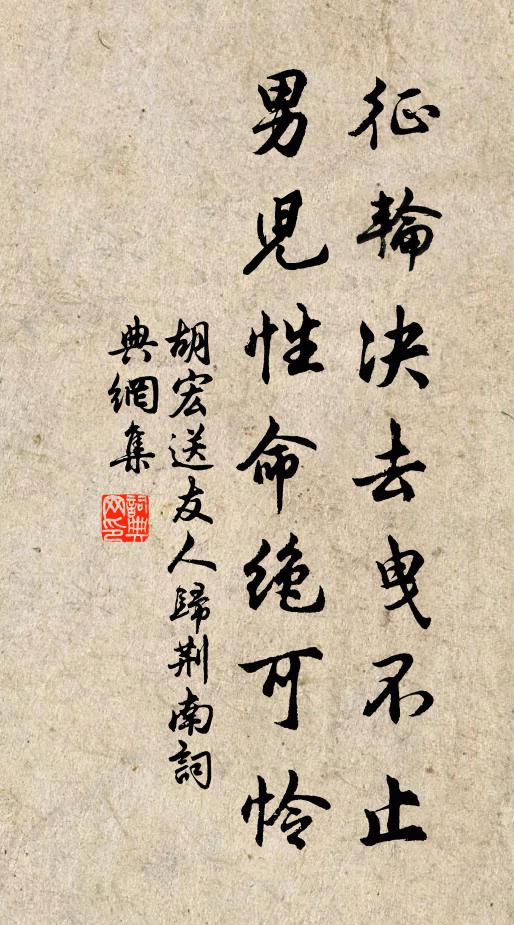 征輪決去曳不止
男児性命絶可怜
胡宏送友人歸荆南詞
典網集
詞典网印